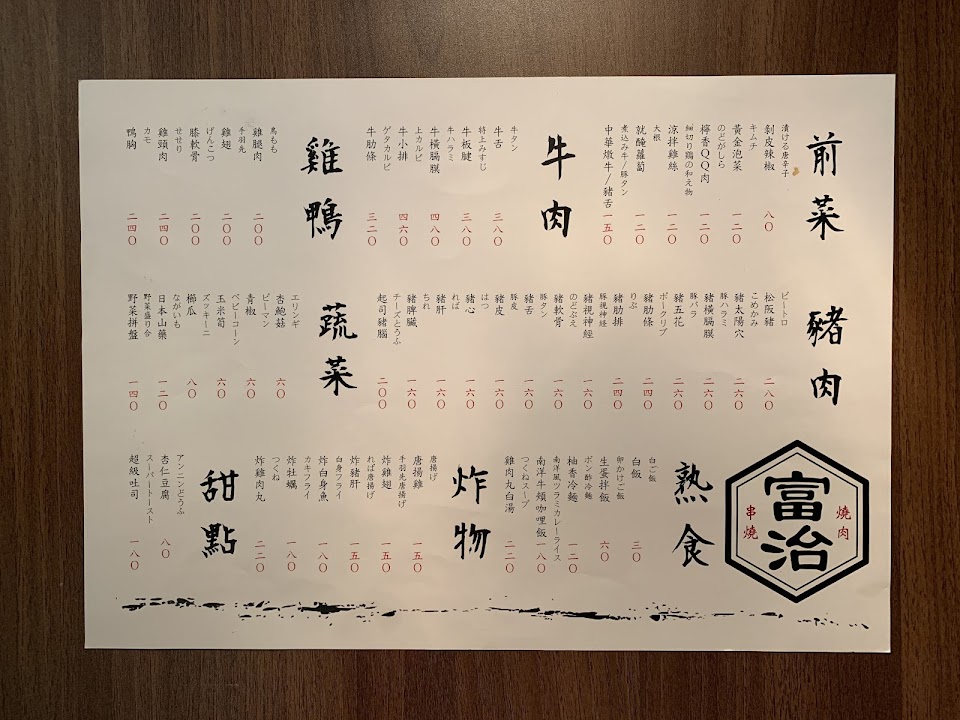 前菜
漬ける唐辛子
剝皮辣椒 八〇
キムチ
黃金泡菜 一二〇
のどがしら
檸香QQ肉 一二〇
細切り鶏の和え物
涼拌雞絲 一二〇
大根
就醃蘿蔔 一二〇
煮込み牛/豚タン
中華燉牛/豬舌 一五〇
牛肉
牛タン
牛舌 三八〇
特上みすじ
牛板腱 三八〇
牛ハラミ
牛橫膈膜 四八〇
上カルビ
牛小排 四六〇
ゲタカルビ
牛肋條 三二〇
雞鴨
鳥もも
雞腿肉 二〇〇
手羽先
雞翅 二〇〇
げんこつ
膝軟骨 二〇〇
せせり
雞頸肉 二四〇
カモ
鴨胸 二四〇
豬肉
ピートロ
松阪豬 二八〇
こめかみ
豬太陽穴 二六〇
豚ハラミ
豬橫膈膜 二六〇
豚バラ
豬五花 二六〇
ポークリブ
豬肋條 二四〇
りぶ
豬肋排 二四〇
豚視神経
豬視神經 一六〇
のどぶえ
豬軟骨 一六〇
豚タン
豬舌 一六〇
豚皮
豬皮 一六〇
はつ
豬心 一六〇
れば
豬肝 一六〇
ちれ
豬脾臟 一六〇
チーズとうふ
起司豬腦 二〇〇
蔬菜
エリンギ
杏鮑菇 六〇
ピーマン
青椒 六〇
ベビーコーン
玉米筍 六〇
ズッキーニ
櫛瓜 八〇
ながいも
日本山藥 一二〇
野菜盛り合
野菜拼盤 一四〇
富治
燒肉
串燒
熟食
白ご飯
白飯 三〇
卵かけご飯
生蛋拌飯 六〇
ポン酢冷麵
柚香冷麵 一二〇
南洋風ツラミカレーライス
南洋牛頰咖哩飯 一八〇
つくねスープ
雞肉丸白湯 二二〇
炸物
唐揚げ
唐揚雞 一五〇
手羽先唐揚げ
炸雞翅 一五〇
れば唐揚げ
炸豬肝 一五〇
白身フライ
炸白身魚 一八〇
カキフライ
炸牡蠣 一八〇
つくね
炸雞肉丸 二二〇
甜點
アンニンとうふ
杏仁豆腐 八〇
スーパートースト
超級吐司 一八〇